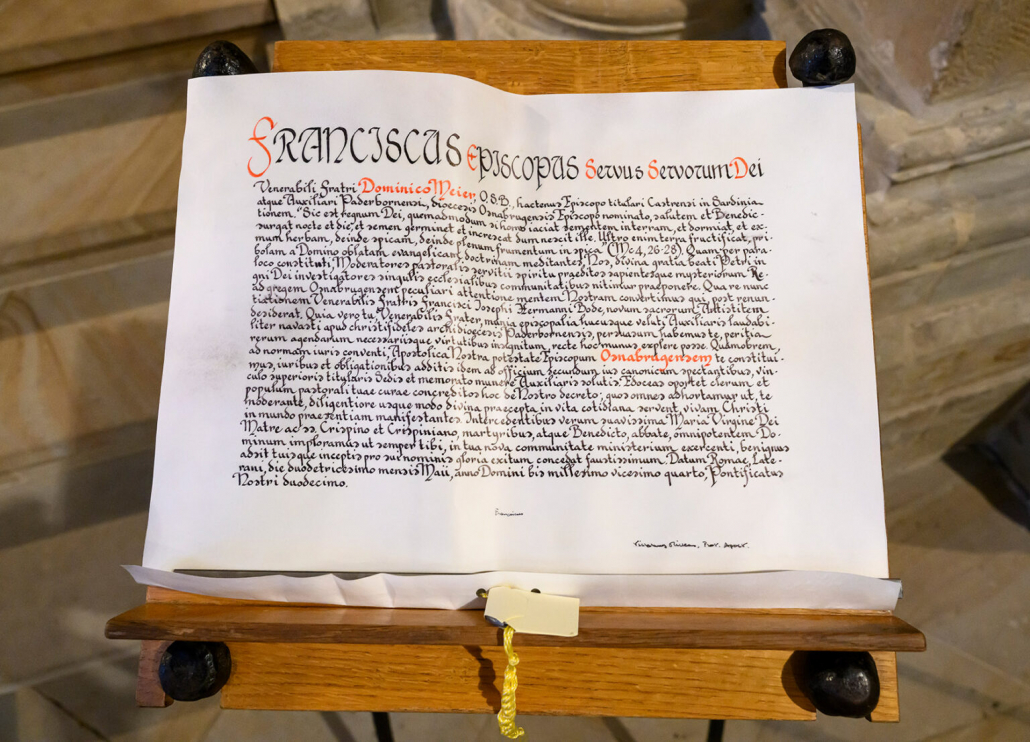 FRANCISCUS EPISCOPUS Servus Servorum Dei
Venerabili Fratri Dominico Meier, O.S.B., hactenus Episcopo titulari Castrensi in Sardinia
atque Auxiliari Paderbornensi, dioecesis Osnabrugensis Episcopo nominato, salutem et Benedic-
tionem. "Sic est regnum Dei, quemadmodum si homo iaciat sementem in terram, et dormiat, et ex-
surgat nocte et die, et semen germinet et increscat dum nescit ille. Ultro enim terra fructificat, pri-
mum herbam, deinde spicam, deinde plenum frumentum in spica" (Mc 4, 26-28). Quam per para-
bolam a Domino oblatam evangelicam doctrinam meditantes, Nos, divina gratia beati Petri in
loco constituti, Moderatores pastoralis servitii spiritu praeditos sapientesque mysteriorum Re-
gni Dei investigatores singulis ecclesialibus communitatibus nitimur praeponere. Qua re nunc
ad gregem Osnabrugensem peculiari attentione mentem Nostram convertimus qui, post renun-
tiationem Venerabilis Fratris Francisci Iosephi Hermanni Bode, novum sacrorum Antistitem
desiderat. Quia vero tu, Venerabilis Frater, munia episcopalia hucusque veluti Auxiliaris laudabi-
liter navasti apud christifideles archidioecesis Paderbornensis, persuasum habemus te, peritia
rerum agendarum necessariisque virtutibus insignitum, recte hoc munus explere posse. Quamobrem,
ad normam iuris conventi, Apostolica Nostra potestate Episcopum Osnabrugensem te constitui-
mus, iuribus et obligationibus additis idem ad officium secundum ius canonicum spectantibus, vin-
culo superioris titularis Sedis et memorato munere Auxiliaris solutis. Edoceas oportet clerum et
populum pastorali tuae curae concreditos hoc de Nostro decreto; quos omnes adhortamur ut, te
moderante, diligentiore usque modo divina praecepta in vita cotidiana servent, vivam Christi
in mundo praesentiam manifestantes. Intercedentibus verum suavissima Maria Virgine Dei
Matre ac ss. Crispino et Crispiniano, martyribus, atque Benedicto, abbate, omnipotentem Do-
minum imploramus ut semper tibi, in tua nova communitate ministerium exercenti, benignus
adsit tuisque inceptis pro sui nominis gloria exitum concedat faustissimum. Datum Romae, Late-
rani, die duodetricesimo mensis Maii, anno Domini bis millesimo vicesimo quarto, Pontificatus
Nostri duodecimo.
Franciscus